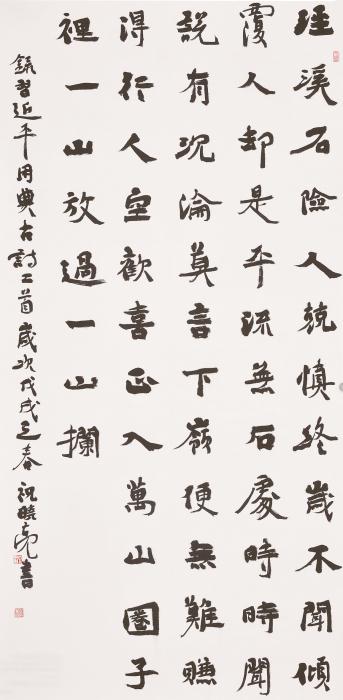 涇溪石險人兢慎終歲不聞傾
覆人却是平流無石處時時聞
説有沉淪莫言下嶺便無難賺
得行人空歡喜正入萬山圈子
裡一山放過一山攔
錄習近平用典古詩二首歲次戊戌之春祝曉亮書